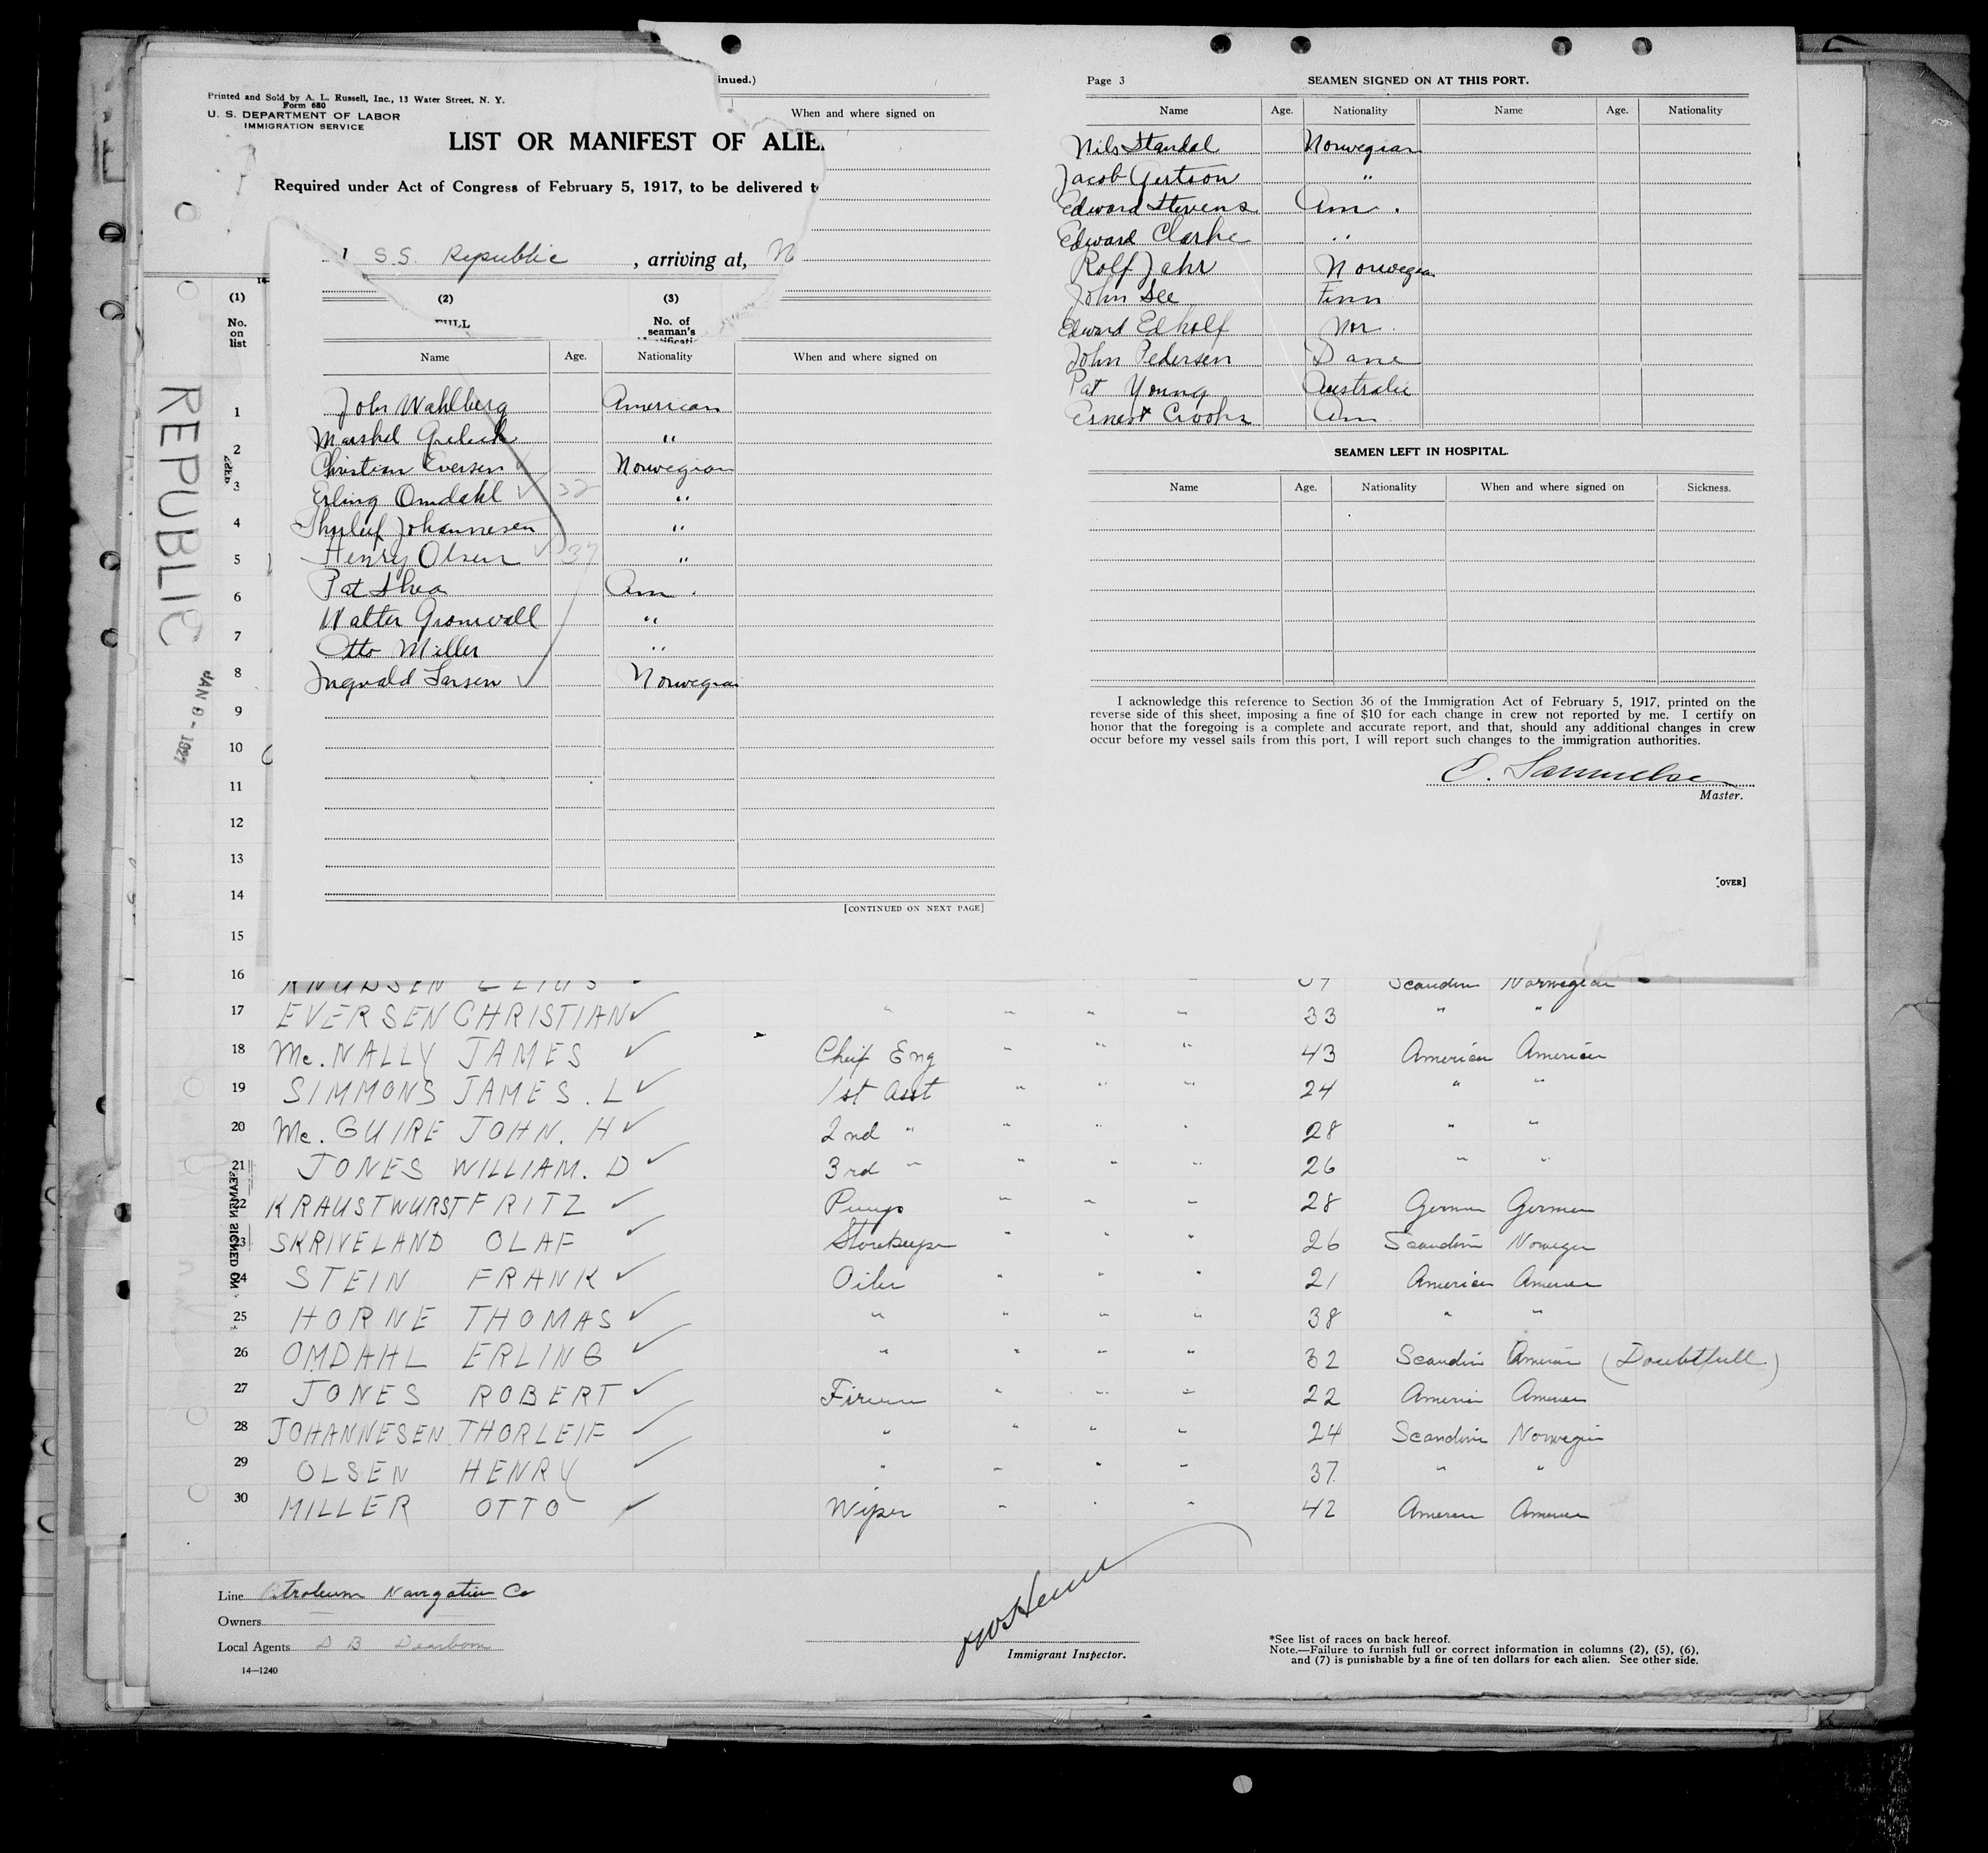 Printed and Sold by A. L. Russell, Inc., 13 Water Street, N. Y.
Form 680
U. S. DEPARTMENT OF LABOR
IMMIGRATION SERVICE
LIST OR MANIFEST OF ALIE
Required under Act of Congress of February 5, 1917, to be delivered t
S.S. Republic , arriving at, N
inued.)
When and where signed on
(1) (2) (3)
No. on list FULL No. of seaman's
REPUBLIC
JAN 8 - 1927
Name Age. Nationality When and where signed on
John Wahlberg American
Marshel "
Christian Eversen Norwegian
Erling Omdahl ✓ 32 "
Thorleif Johannesen "
Henry Olsen ✓ 37 "
Pat Shea Am.
Walter Gronwall "
Otto Miller "
Ingvald Larsen ✓ Norwegian
[CONTINUED ON NEXT PAGE]
Page 3 SEAMEN SIGNED ON AT THIS PORT.
Name Age. Nationality Name Age. Nationality
Nils Standal Norwegian
Jacob "
Edward Stevens Am.
Edward Clarke "
Rolf Jahr Norwegian
John See Finn
Edward Edholf Nor.
John Pedersen Dane
Pat Young Australia
Ernest Crooks Am
SEAMEN LEFT IN HOSPITAL.
Name Age. Nationality When and where signed on Sickness.
I acknowledge this reference to Section 36 of the Immigration Act of February 5, 1917, printed on the
reverse side of this sheet, imposing a fine of $10 for each change in crew not reported by me. I certify on
honor that the foregoing is a complete and accurate report, and that, should any additional changes in crew
occur before my vessel sails from this port, I will report such changes to the immigration authorities.
Master.
[OVER]
1
2
3
4
5
6
7
8
9
10
11
12
13
14
15
16 KNUDSEN Scandin Norwegian
17 EVERSEN CHRISTIAN ✓ " " " " 33 " "
18 Mc. NALLY JAMES ✓ Chief Eng " " " 43 American American
19 SIMMONS JAMES. L ✓ 1st Asst " " " 24 " "
20 Mc. GUIRE JOHN. H ✓ 2nd " " " " 28 " "
21 JONES WILLIAM. D ✓ 3rd " " " " 26 " "
22 KRAUSTWURST FRITZ ✓ Pump " " " 28 German German
23 SKRIVELAND OLAF ✓ Storekeeper " " " 26 Scandin Norwegn
24 STEIN FRANK ✓ Oiler " " " 21 American American
25 HORNE THOMAS ✓ " " " " 38 " "
26 OMDAHL ERLING ✓ " " " " 32 Scandin American (Doubtfull)
27 JONES ROBERT ✓ Firemn " " " 22 American American
28 JOHANNESEN THORLEIF ✓ " " " " 24 Scandin Norwegin
29 OLSEN HENRY ✓ " " " " 37 " "
30 MILLER OTTO ✓ Wiper " " " 42 American American
SEAMEN SIGNED ON
Line Petroleum Navigation Co
Owners
Local Agents D B Dearborn
14—1240
Immigrant Inspector.
*See list of races on back hereof.
Note.—Failure to furnish full or correct information in columns (2), (5), (6),
and (7) is punishable by a fine of ten dollars for each alien. See other side.